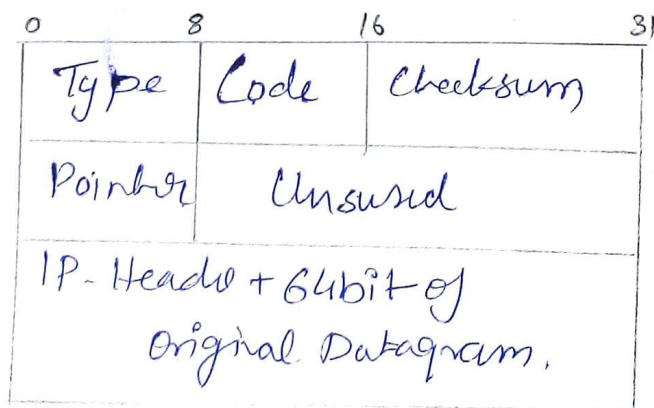 0 8 16 31
Type Code Checksum
Pointer Unsused
IP-Header + 64bit of
Original Datagram.